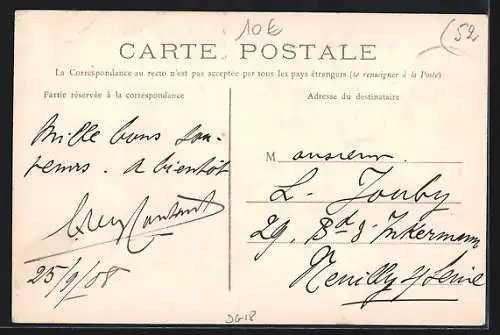 10€
(52
CARTE POSTALE
La Correspondance au recto n'est pas acceptée par tous les pays étrangers (se renseigner à la Poste)
Partie réservée à la correspondance
Adresse du destinataire
Mille bons sou-
venirs. a bientôt
25/9/08
Monsieur.
L. Jouby
29, Bd d'Inkermann
Neuilly s/Seine
DG18